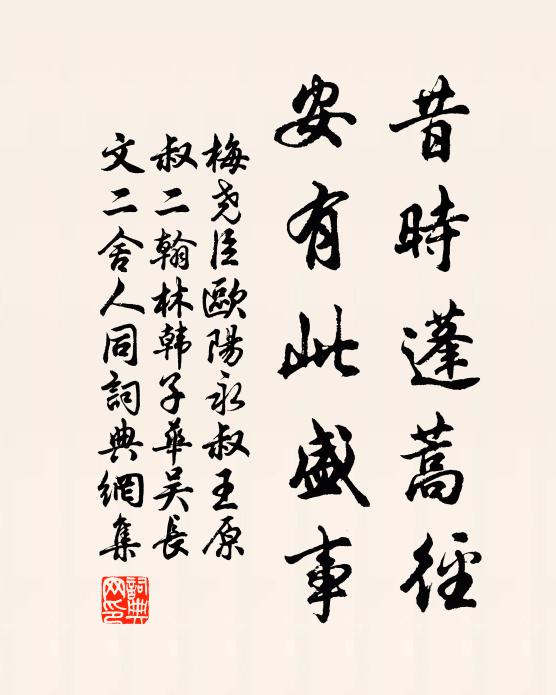 昔時蓬蒿徑
安有此盛事
梅堯臣歐陽永叔王原
叔二翰林韓子華吴長
文二舍人同詞典網集
詞典網印